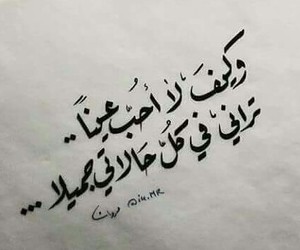 وَكيفَ لاَ أحُبّ عيناً..
ترَاني في كلّ حَالاتي جميلا...
@iu.MR